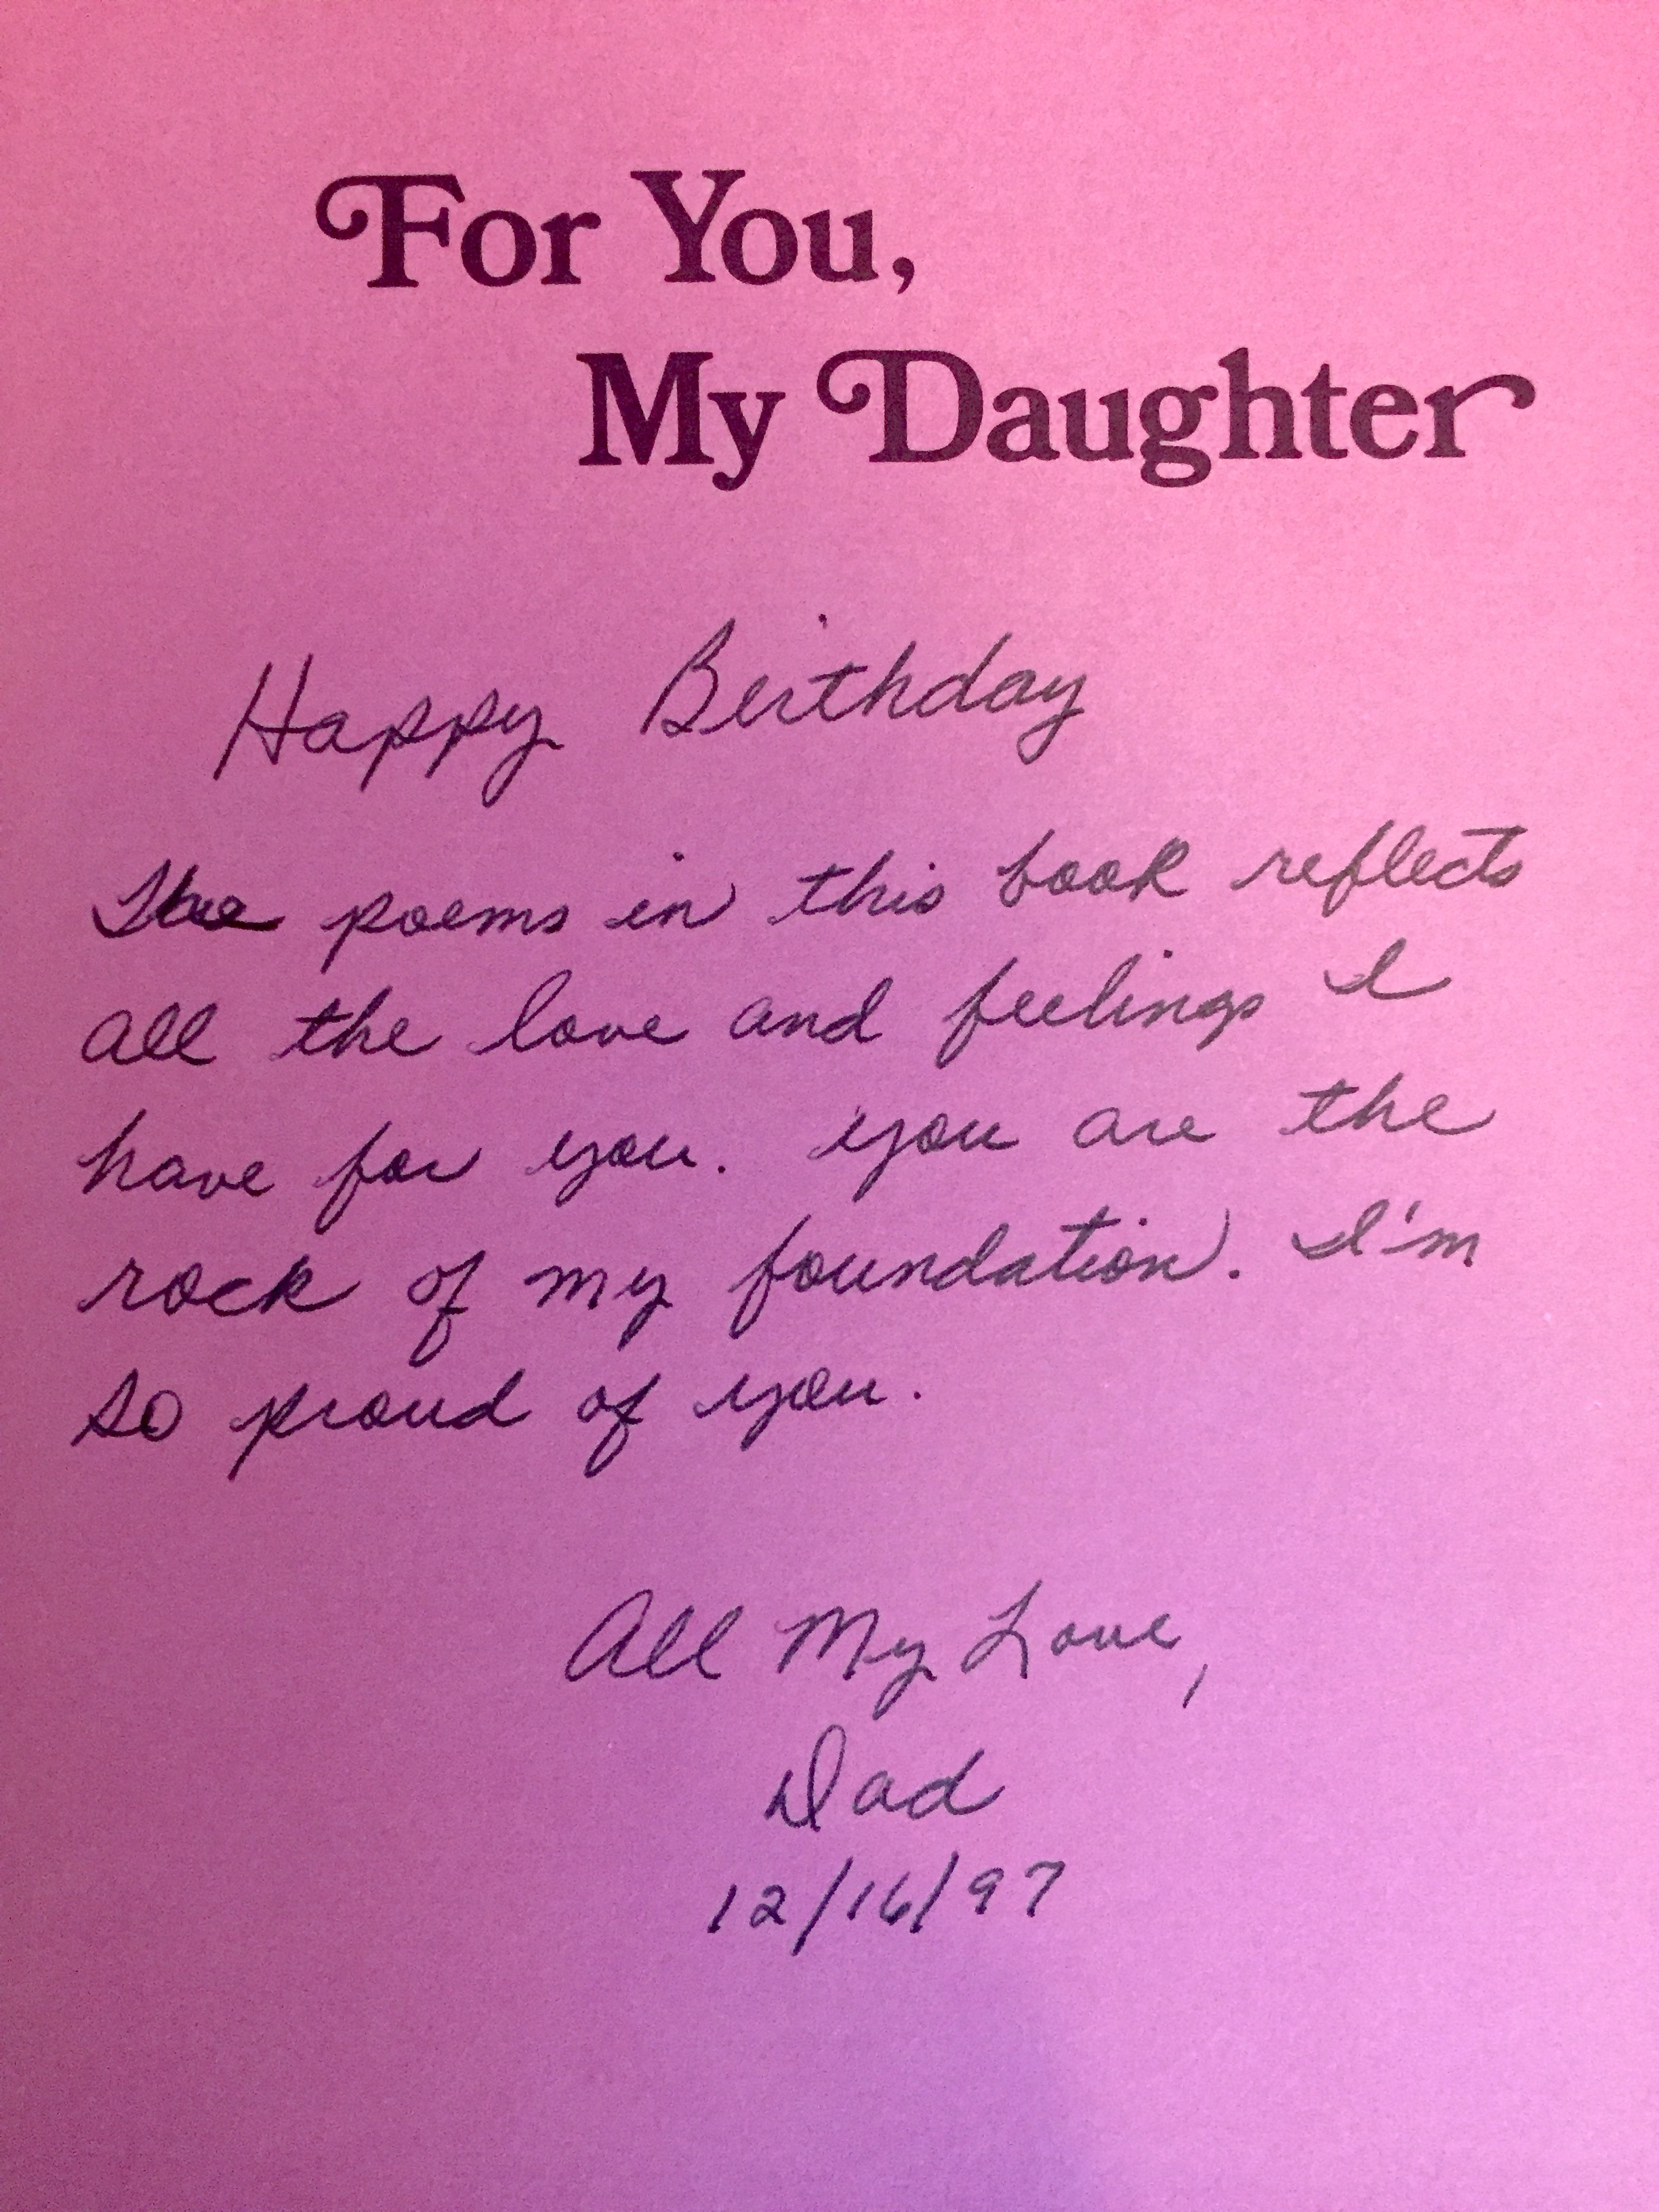 For You,
My Daughter
Happy Birthday
The poems in this book reflects
all the love and feelings I
have for you. you are the
rock of my foundation. I'm
so proud of you.
All My Love,
Dad
12/16/97